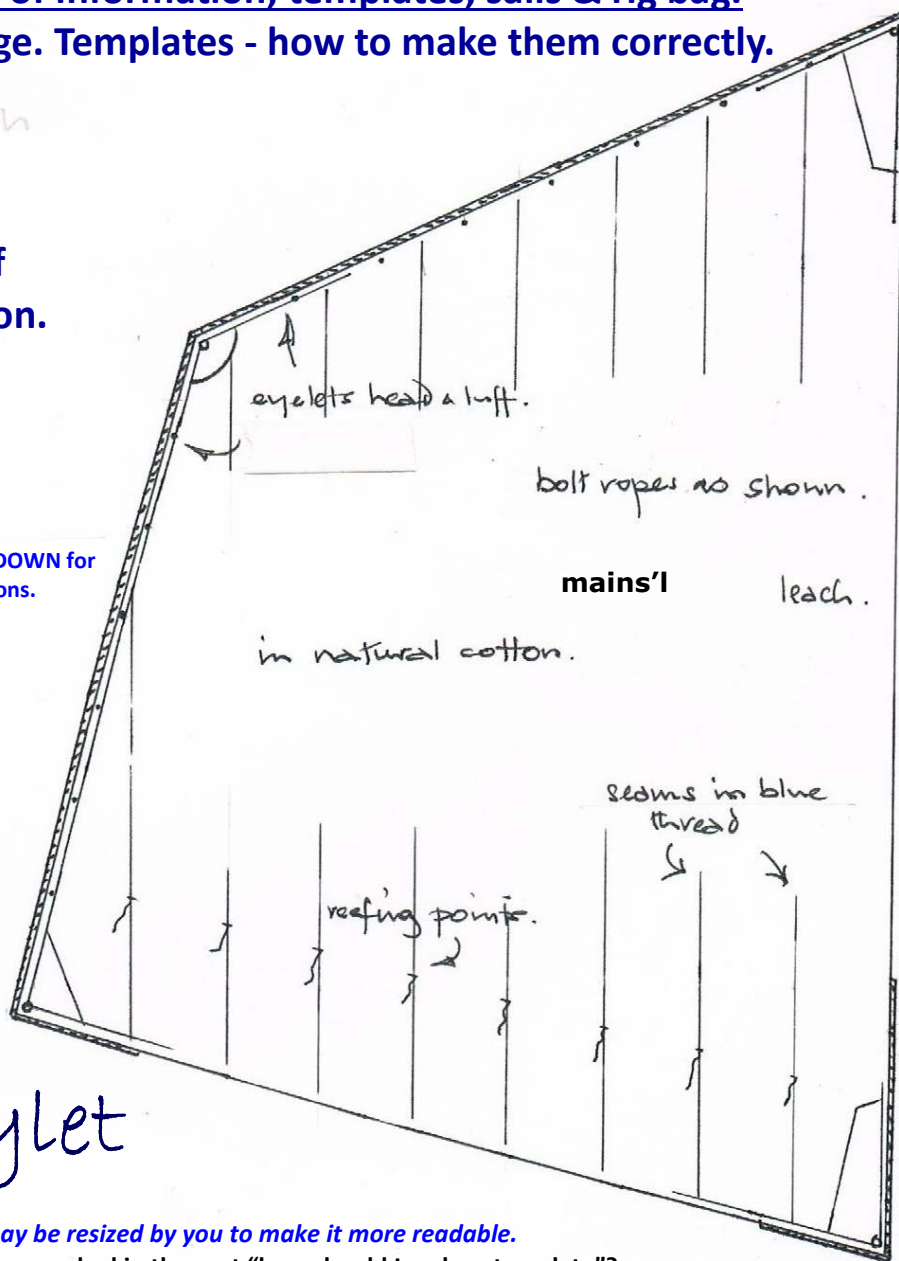 of information, templates, sails & rig bag.
ge. Templates - how to make them correctly.
f
on.
eyelets head & luff.
bolt ropes as shown.
DOWN for
ons.
mains'l
leach.
in natural cotton.
seams in blue
thread
reefing points.
ylet
ay be resized by you to make it more readable.